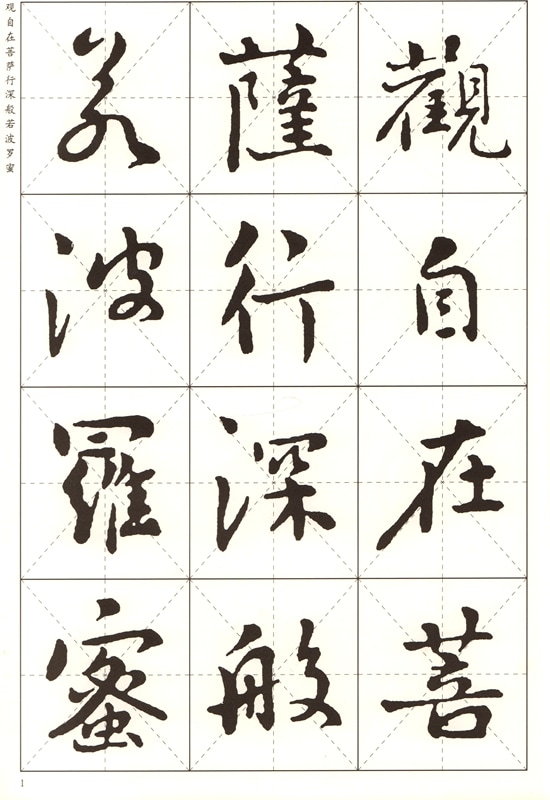 觀自在菩
薩行深般
若波羅蜜
观自在菩萨行深般若波罗蜜
1